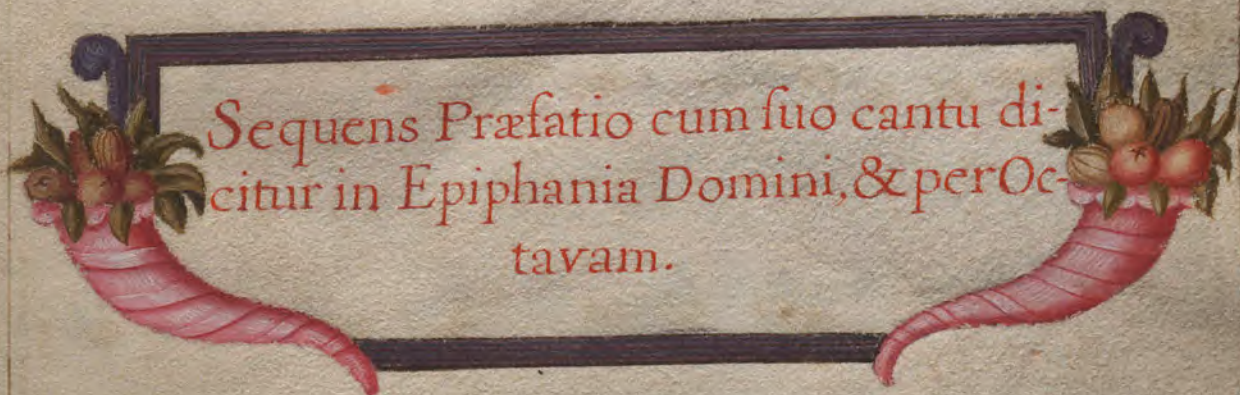 Sequens Præfatio cum ſuo cantu di-
citur in Epiphania Domini, & per Oc-
tavam.